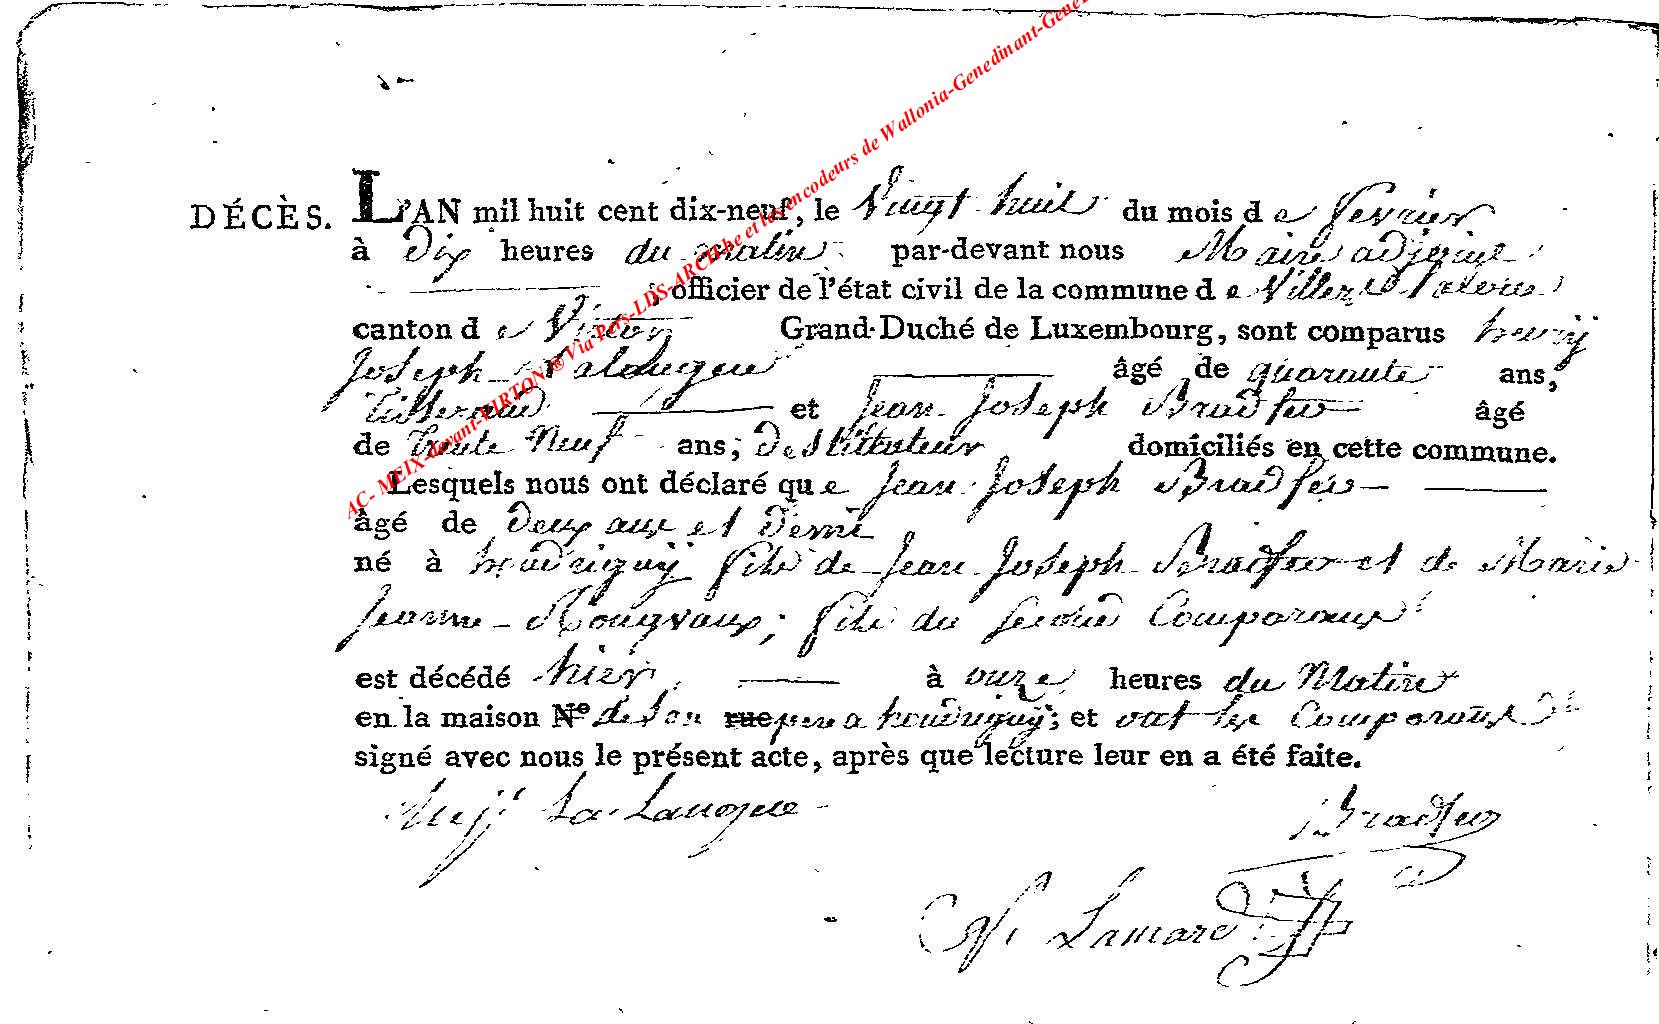 DÉCÈS. L'AN mil huit cent dix-neuf, le Vingt huit du mois de fevrier
à Dix heures du matin par-devant nous Maire adjoint
officier de l'état civil de la commune de Villers
canton de Virton Grand-Duché de Luxembourg, sont comparus henrÿ
Joseph âgé de quarante ans,
Tisserand et Jean Joseph Bradfer âgé
de trente Neuf ans; domiciliés en cette commune.
Lesquels nous ont déclaré que Jean Joseph Bradfer
âgé de deux ans et demi
né à houdrignÿ fils de Jean Joseph Bradfer et de Marie
Jeanne Rougvaux; fils du second Comparant
est décédé hier à onze heures du Matin
en la maison N° de son rue pere a houdrignÿ; et ont les Comparans
signé avec nous le présent acte, après que lecture leur en a été faite.
La Langue
Bradfer
Lamard
AC- MEIX-devant-VIRTON @ Via Pers-LDS-ARCH.be et les encodeurs de Wallonia-Genedinant-Gene